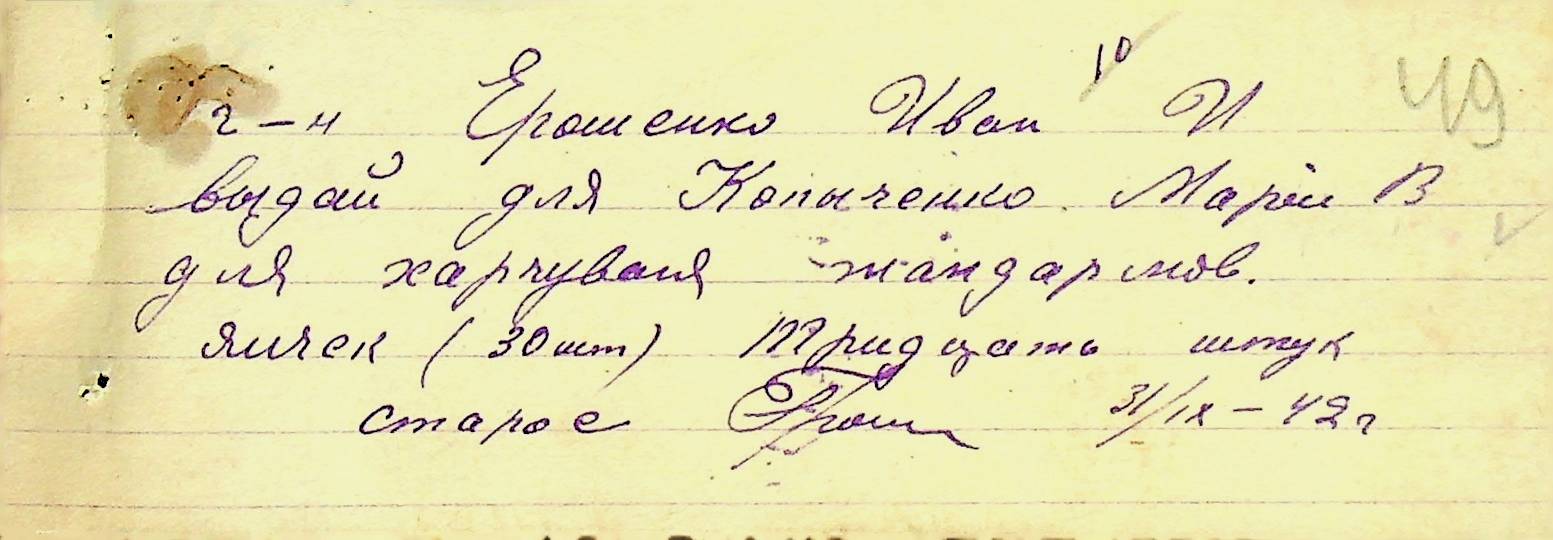 10
49
г-н Ерошенко Иван И
выдай для Копыченко Маріи В
для харчуваня жандармов.
яичек (30 шт) Тридцать штук
старос Ерош 31/IX-42 г